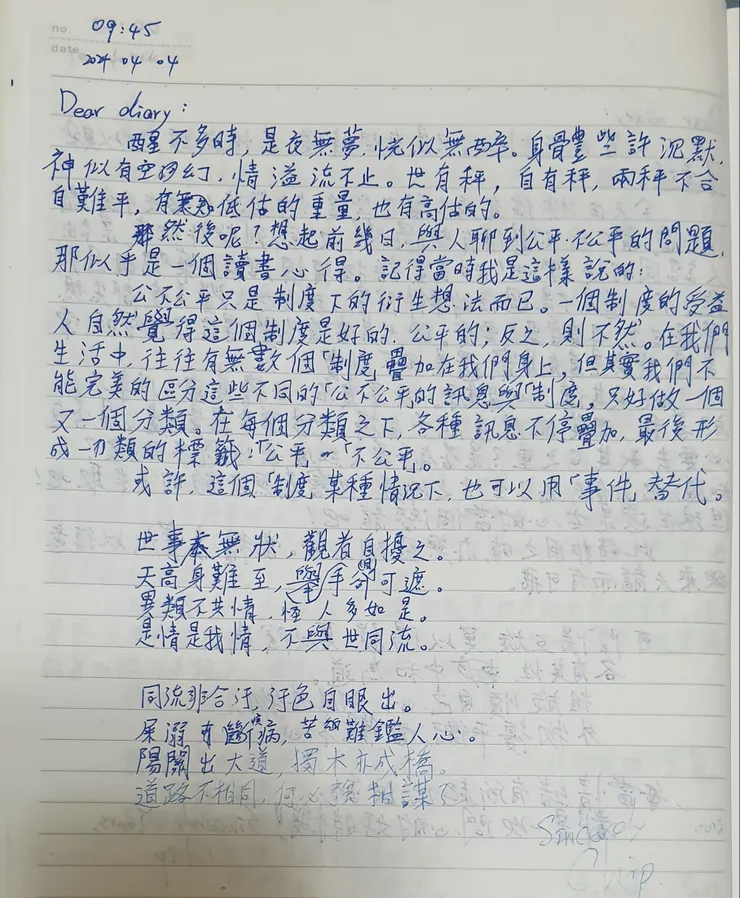 no.
09:45
date
2024 04 04
Dear diary:
醒不多時,是夜無夢,恍似無醉。身骨豊些許沉默,
神似有空的幻,情溢流不止。世有秤,自有秤,兩秤不合
自難平,有低估的重量,也有高估的。
然後呢?想起前幾日,與人聊到公平.不公平的問題,
那似乎是一個讀書心得。記得當時我是這樣說的:
公不公平只是制度下的衍生想法而已。一個制度的受益
人自然覺得這個制度是好的.公平的;反之,則不然。在我們
生活中,往往有無數個「制度」疊加在我們身上,但其實我們不
能完美的區分這些不同的「公不公平」的訊息與「制度」,只好做一個
又一個分類。在每個分類之下,各種訊息不停疊加,最後形
成一切類的標籤:「公平」or「不公平」。
或許,這個「制度」某種情況下,也可以用「事件」替代。
世事本無狀,觀者自擾之。
天高身難至,舉手卻可遮。
異類不共情,怪人多如是。
是情是我情,不與世同流。
同流非合汙,汙色自眼出。
屎溺可斷疾病,苦細難鑑人心。
陽關出大道,獨木亦成橋。
道路不相同,何必強相謀?
Sincerely
Chip.